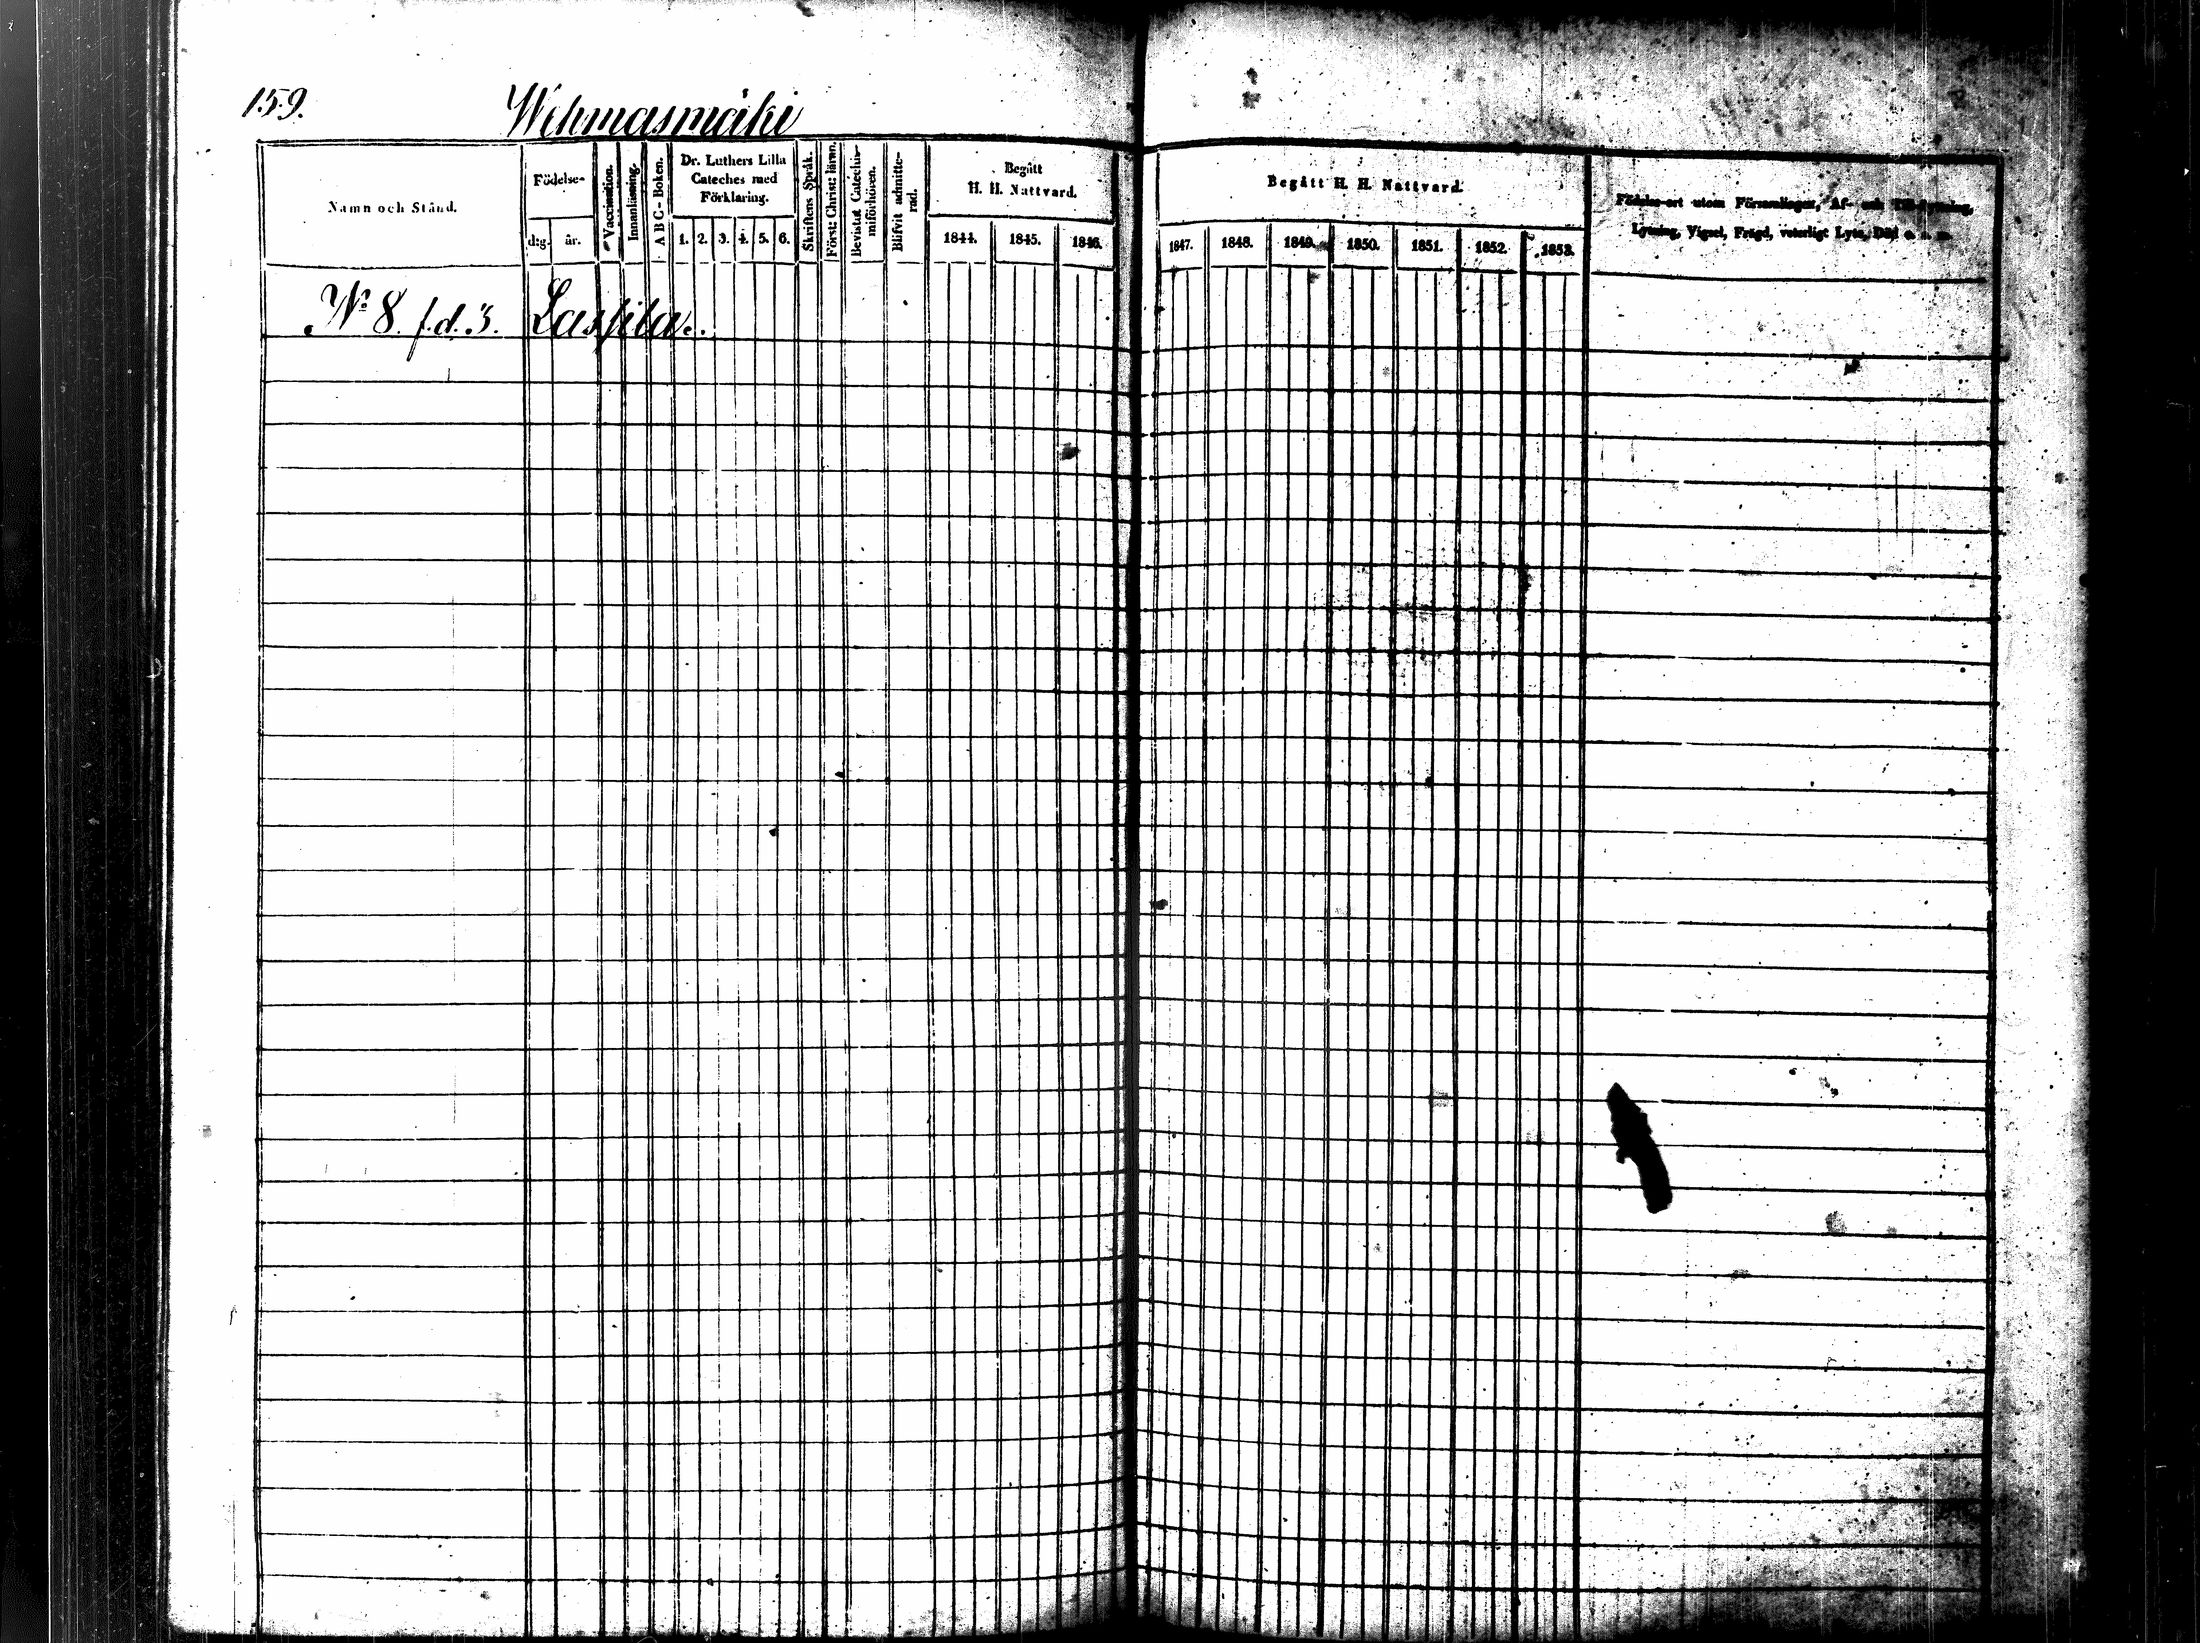 159.
Wehmasmäki
Namn och Stånd.
Födelse-
d:g.
år.
Vaccination.
Innanläsning.
A B C - Boken.
Dr. Luthers Lilla
Cateches med
Förklaring.
1. 2. 3. 4. 5. 6.
Skriftens Språk.
Först: Christ: läran.
Bevistat Catechis-
miförhören.
Blifvit admitte-
rad.
Begått
H. H. Nattvard.
1844. 1845. 1846.
Begått H. H. Nattvard.
1847. 1848. 1849. 1850. 1851. 1852. 1853.
Födelse-ort utom Församlingen, Af- och Till-flyttning,
Lysning, Vigsel, Frägd, veterligt Lyte, Död o. s. m.
No 8. f.d. 3. Lassila.